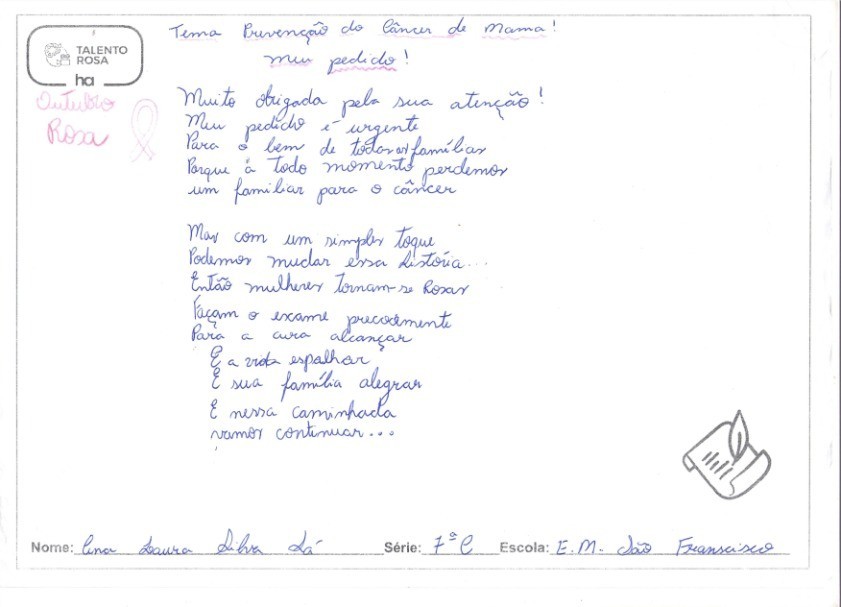 Tema Prevenção do Câncer de Mama!
Meu pedido!
TALENTO
ROSA
ha
Outubro
Rosa
Muito obrigada pela sua atenção!
Meu pedido é urgente
Para o bem de todas as famílias
Porque à todo momento perdemos
um familiar para o câncer
Mas com um simples toque
Podemos mudar essa história...
Então mulheres tornam-se Rosas
Façam o exame precocemente
Para a cura alcançar
E a vida espalhar
E sua família alegrar
E nessa caminhada
vamos continuar...
Nome: Ana Laura Silva Sá Série: 7ª C Escola: E.M. São Franscisco